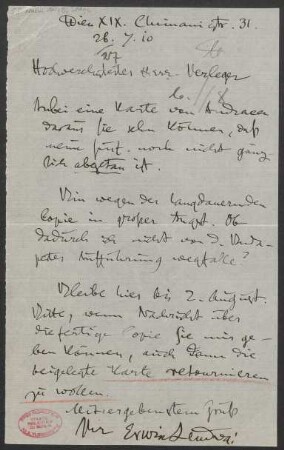 Wien XIX. Chimanistr. 31.
26. 7. 10
Hochverehrtester Herr Verleger
Anbei eine Karte von Andreae
daraus Sie sehn können, daß
meine noch nicht ganz
abgetan ist.
Bin wegen der langdauernden
Copie in großer Angst. Ob
dadurch ich nicht von d. Buda-
pester Aufführung wegfalle?
Bleibe hier bis 2. August.
Bitte, wenn Nachricht über
diesseitige Copie Sie mir ge-
ben können, auch dann die
beigelegte Karte retournieren
zu wollen.
Mit ergebenstem Gruß
Ihr Erwin Lendvai